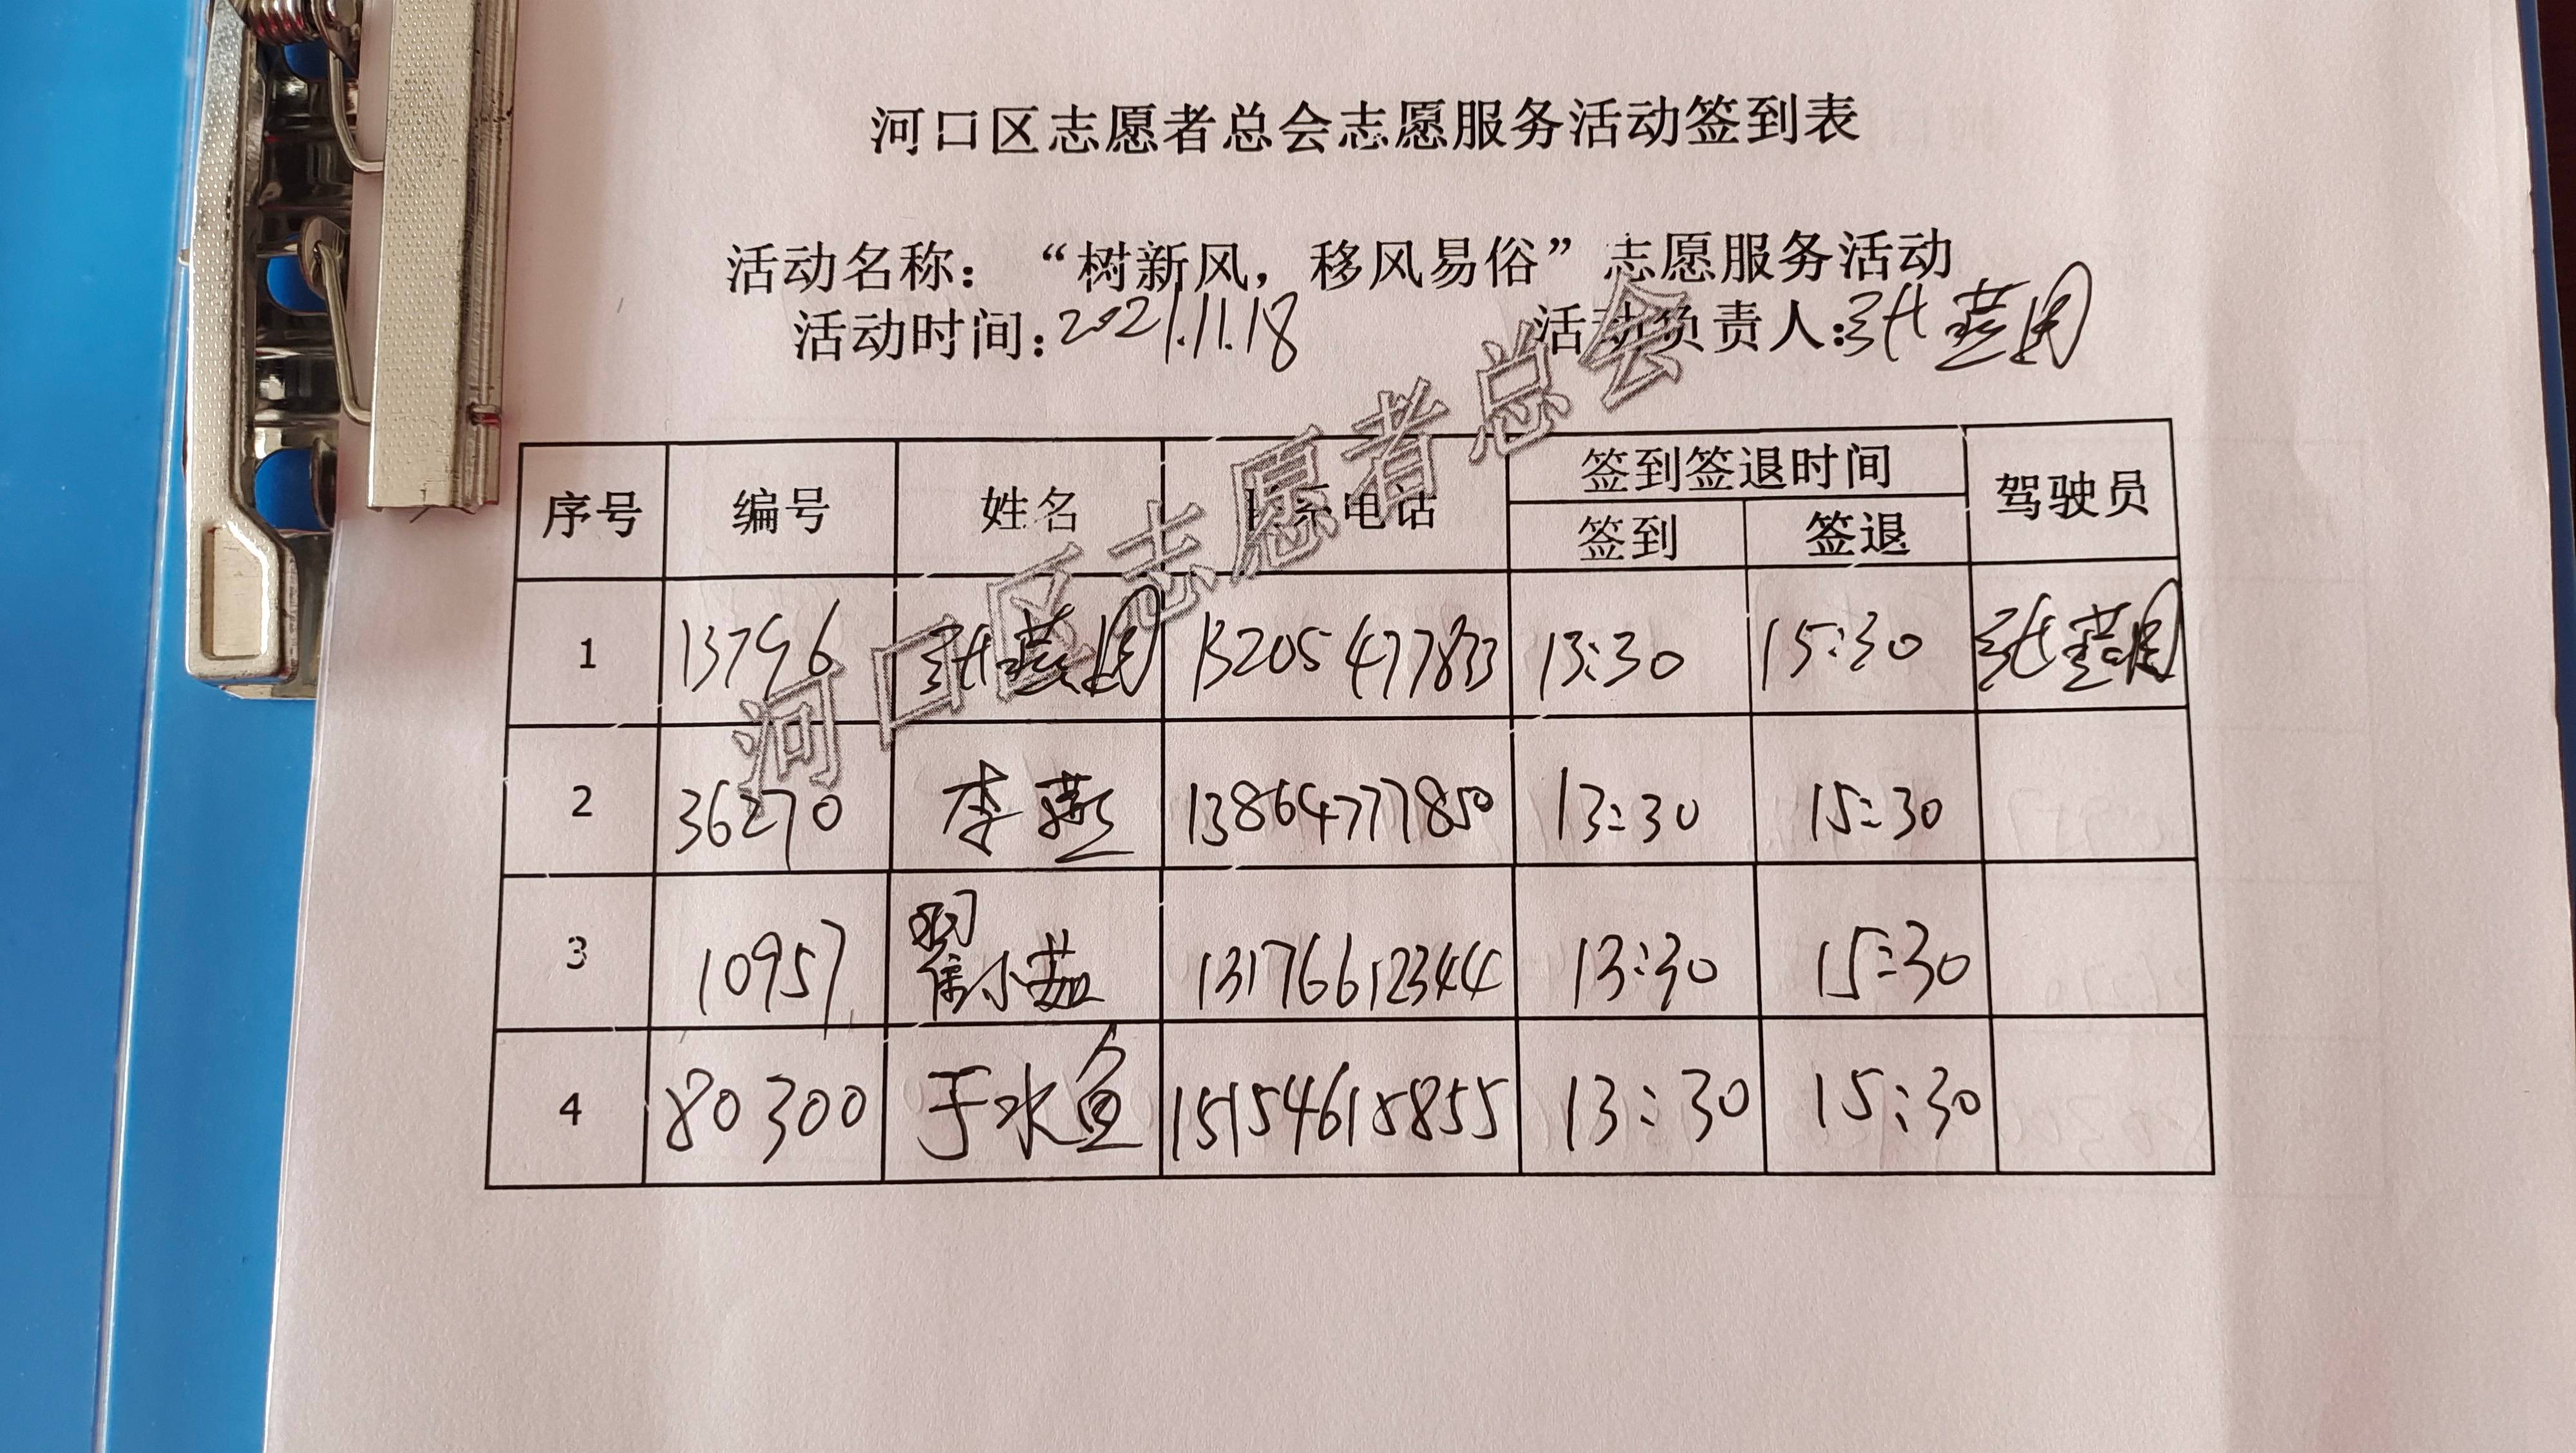 河口区志愿者总会志愿服务活动签到表
活动名称：“树新风，移风易俗”志愿服务活动
活动时间：2021.11.18 活动负责人：张
河口区志愿者总会
序号 编号 姓名 联系电话 签到签退时间 驾驶员
签到 签退
1 13796 张 13205477833 13:30 15:30 张
2 36270 李燕 13864777850 13:30 15:30
3 10957 翟小茹 13176612344 13:30 15:30
4 80300 于水鱼 15154615855 13:30 15:30